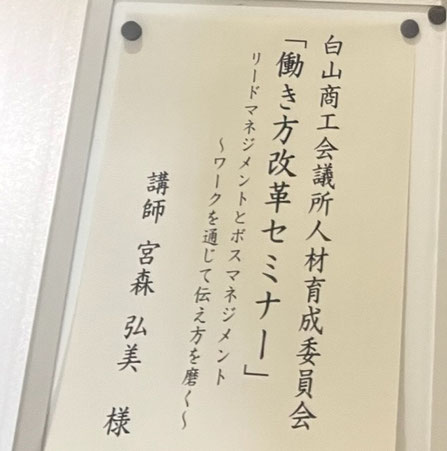 白山商工会議所人材育成委員会
「働き方改革セミナー」
リードマネジメントとボスマネジメント
～ワークを通じて伝え方を磨く～
講師 宮森 弘美 様